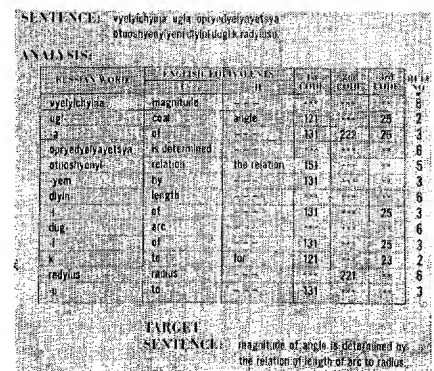 SENTENCE: vyelyichyina ugla opryedyelyayetsya
otnoshyenyiyem dlyini dugi k radyiusu
ANALYSIS:
RUSSIAN WORD ENGLISH EQUIVALENTS 1st CODE 2nd CODE 3rd CODE RULE NO.
I II
vyelyichyina magnitude --- --- --- --- 6
ugl- coal angle 121 --- 25 2
-a of --- 131 222 25 3
opryedyelyayetsya is determined --- --- --- --- 6
otnoshyenyi- relation the relation 151 --- --- 5
-yem by --- 131 --- --- 3
dlyin- length --- --- --- --- 6
-i of --- 131 --- 25 3
dug- arc --- --- --- --- 6
-i of --- 131 --- 25 3
k to for 121 --- 23 2
radyius- radius --- --- 221 --- 6
-u to --- 131 --- --- 3
TARGET
SENTENCE: magnitude of angle is determined by
the relation of length of arc to radius